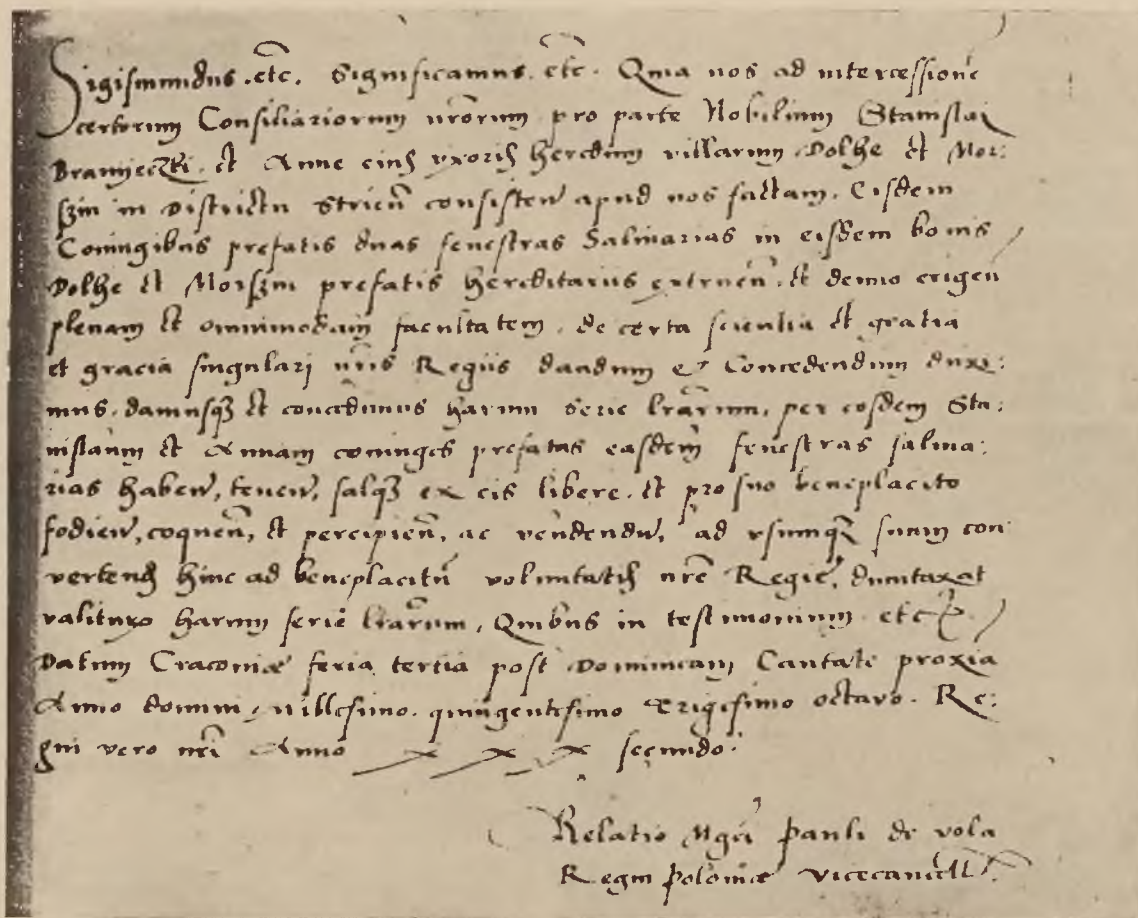 Sigismundus. etc. Significamus. etc. Quia nos ad intercessione
certorum Consiliariorum nrorum pro parte Nobilium Stanislai
et Anne eius vxoris heredum villarum Dolhe et Mor:
szin in Districtu Strien consisten apud nos factam. Eisdem
Coniugibus prefatis duas fenestras Salinarias in eisdem bonis
Dolhe et Morszin prefatis hereditariis extruen. et denuo erigen
plenam et omnimodam facultatem. de certa scientia et gratia
et gracia singulari nris Regiis dandum et Concedendum duxi:
mus. damusqz et concedimus harum serie lrarum, per eosdem Sta:
nislaum et Annam coniuges prefatas easdem fenestras salina:
rias haben, tenen, salqz ex eis libere. et pro suo beneplacito
fodien, coquen, et percipien, ac vendendu, ad vsumqz suum con
vertend hinc ad beneplacitu voluntatis nre Regie, dumtaxat
valituro harum serie lrarum, Quibus in testimonium etc
Datum Cracouiæ feria tertia post Dominicam Cantate proxia
Anno domini, millesimo. quingentesimo Trigesimo octavo. Re:
gni vero nri Anno x x x secundo.
Relatio Mgci Pauli de vola
Regni poloniæ vicecancell.